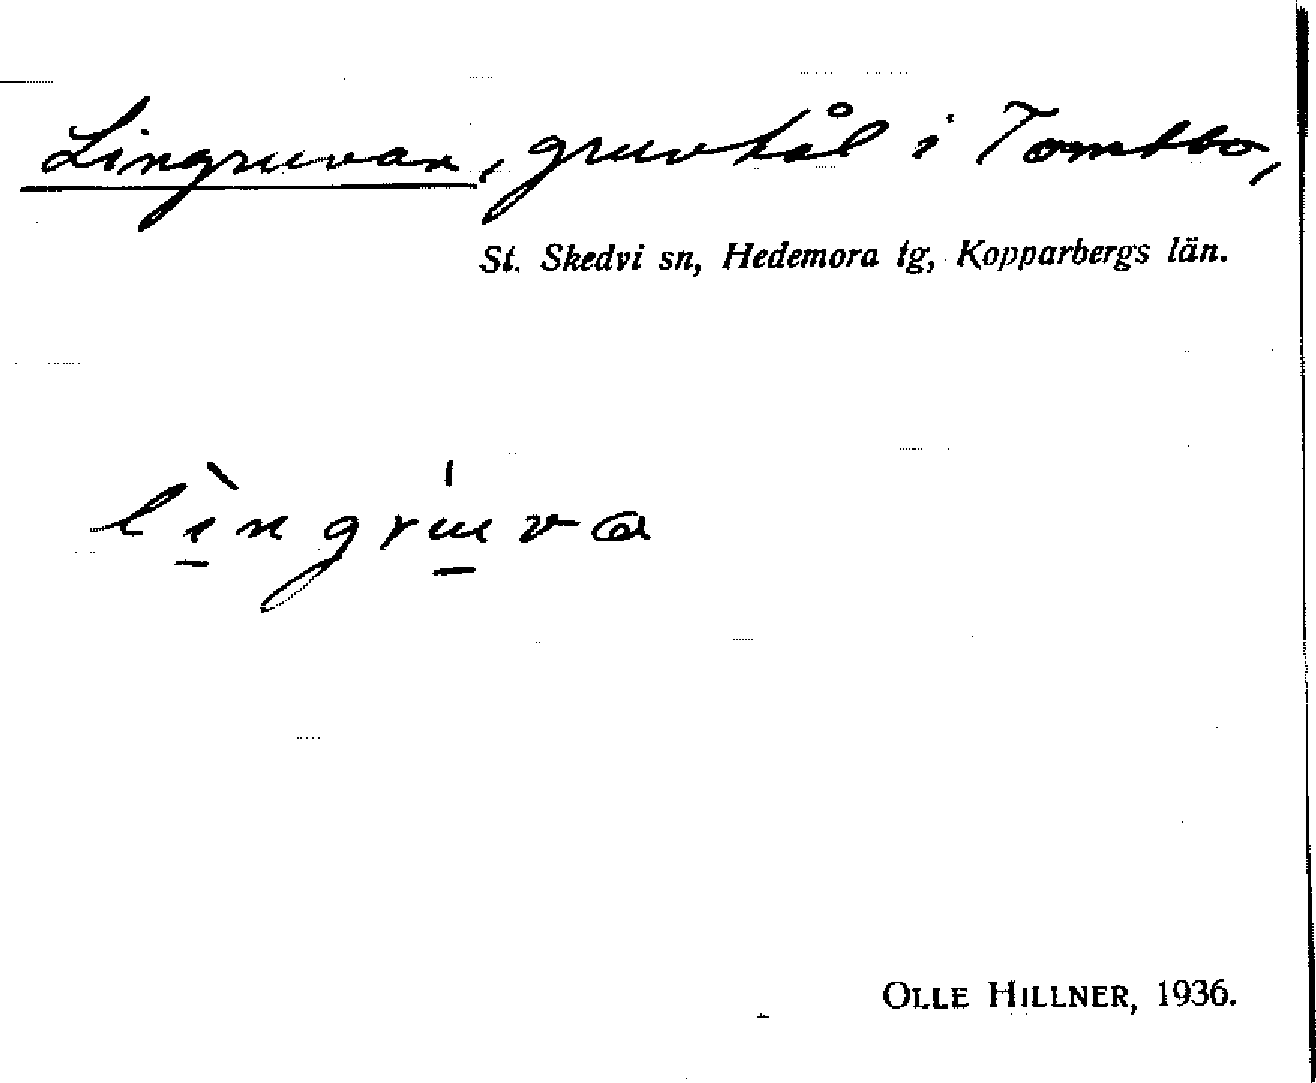 Lingruvan, gruvhål i Tomtbo,
St. Skedvi sn, Hedemora tg, Kopparbergs län.
lìngrúva
OLLE HILLNER, 1936.